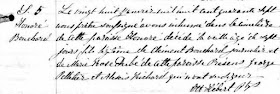 S. 5
Honoré
Bouchard
Le vingt huit janvier mil huit cent quarante sept
nous prêtre soussigné avons inhumé dans le cimetière
de cette paroisse Honoré décédé la veille agé de sept
jours, fils légitime de Clément Bouchard journalier et
de Marie Rose Dubé de cette paroisse Présens George
Pelletier et Alexis Richard qui n'ont su signer